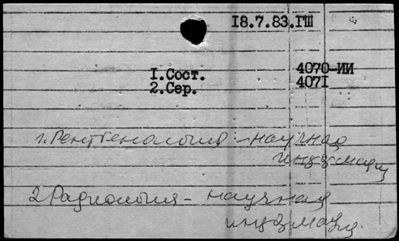 18.7.83.ГШ
1.Сост. 4070-ИИ
2.Сер. 4071
1. Рентгенология - научная
2 Радиология - научная